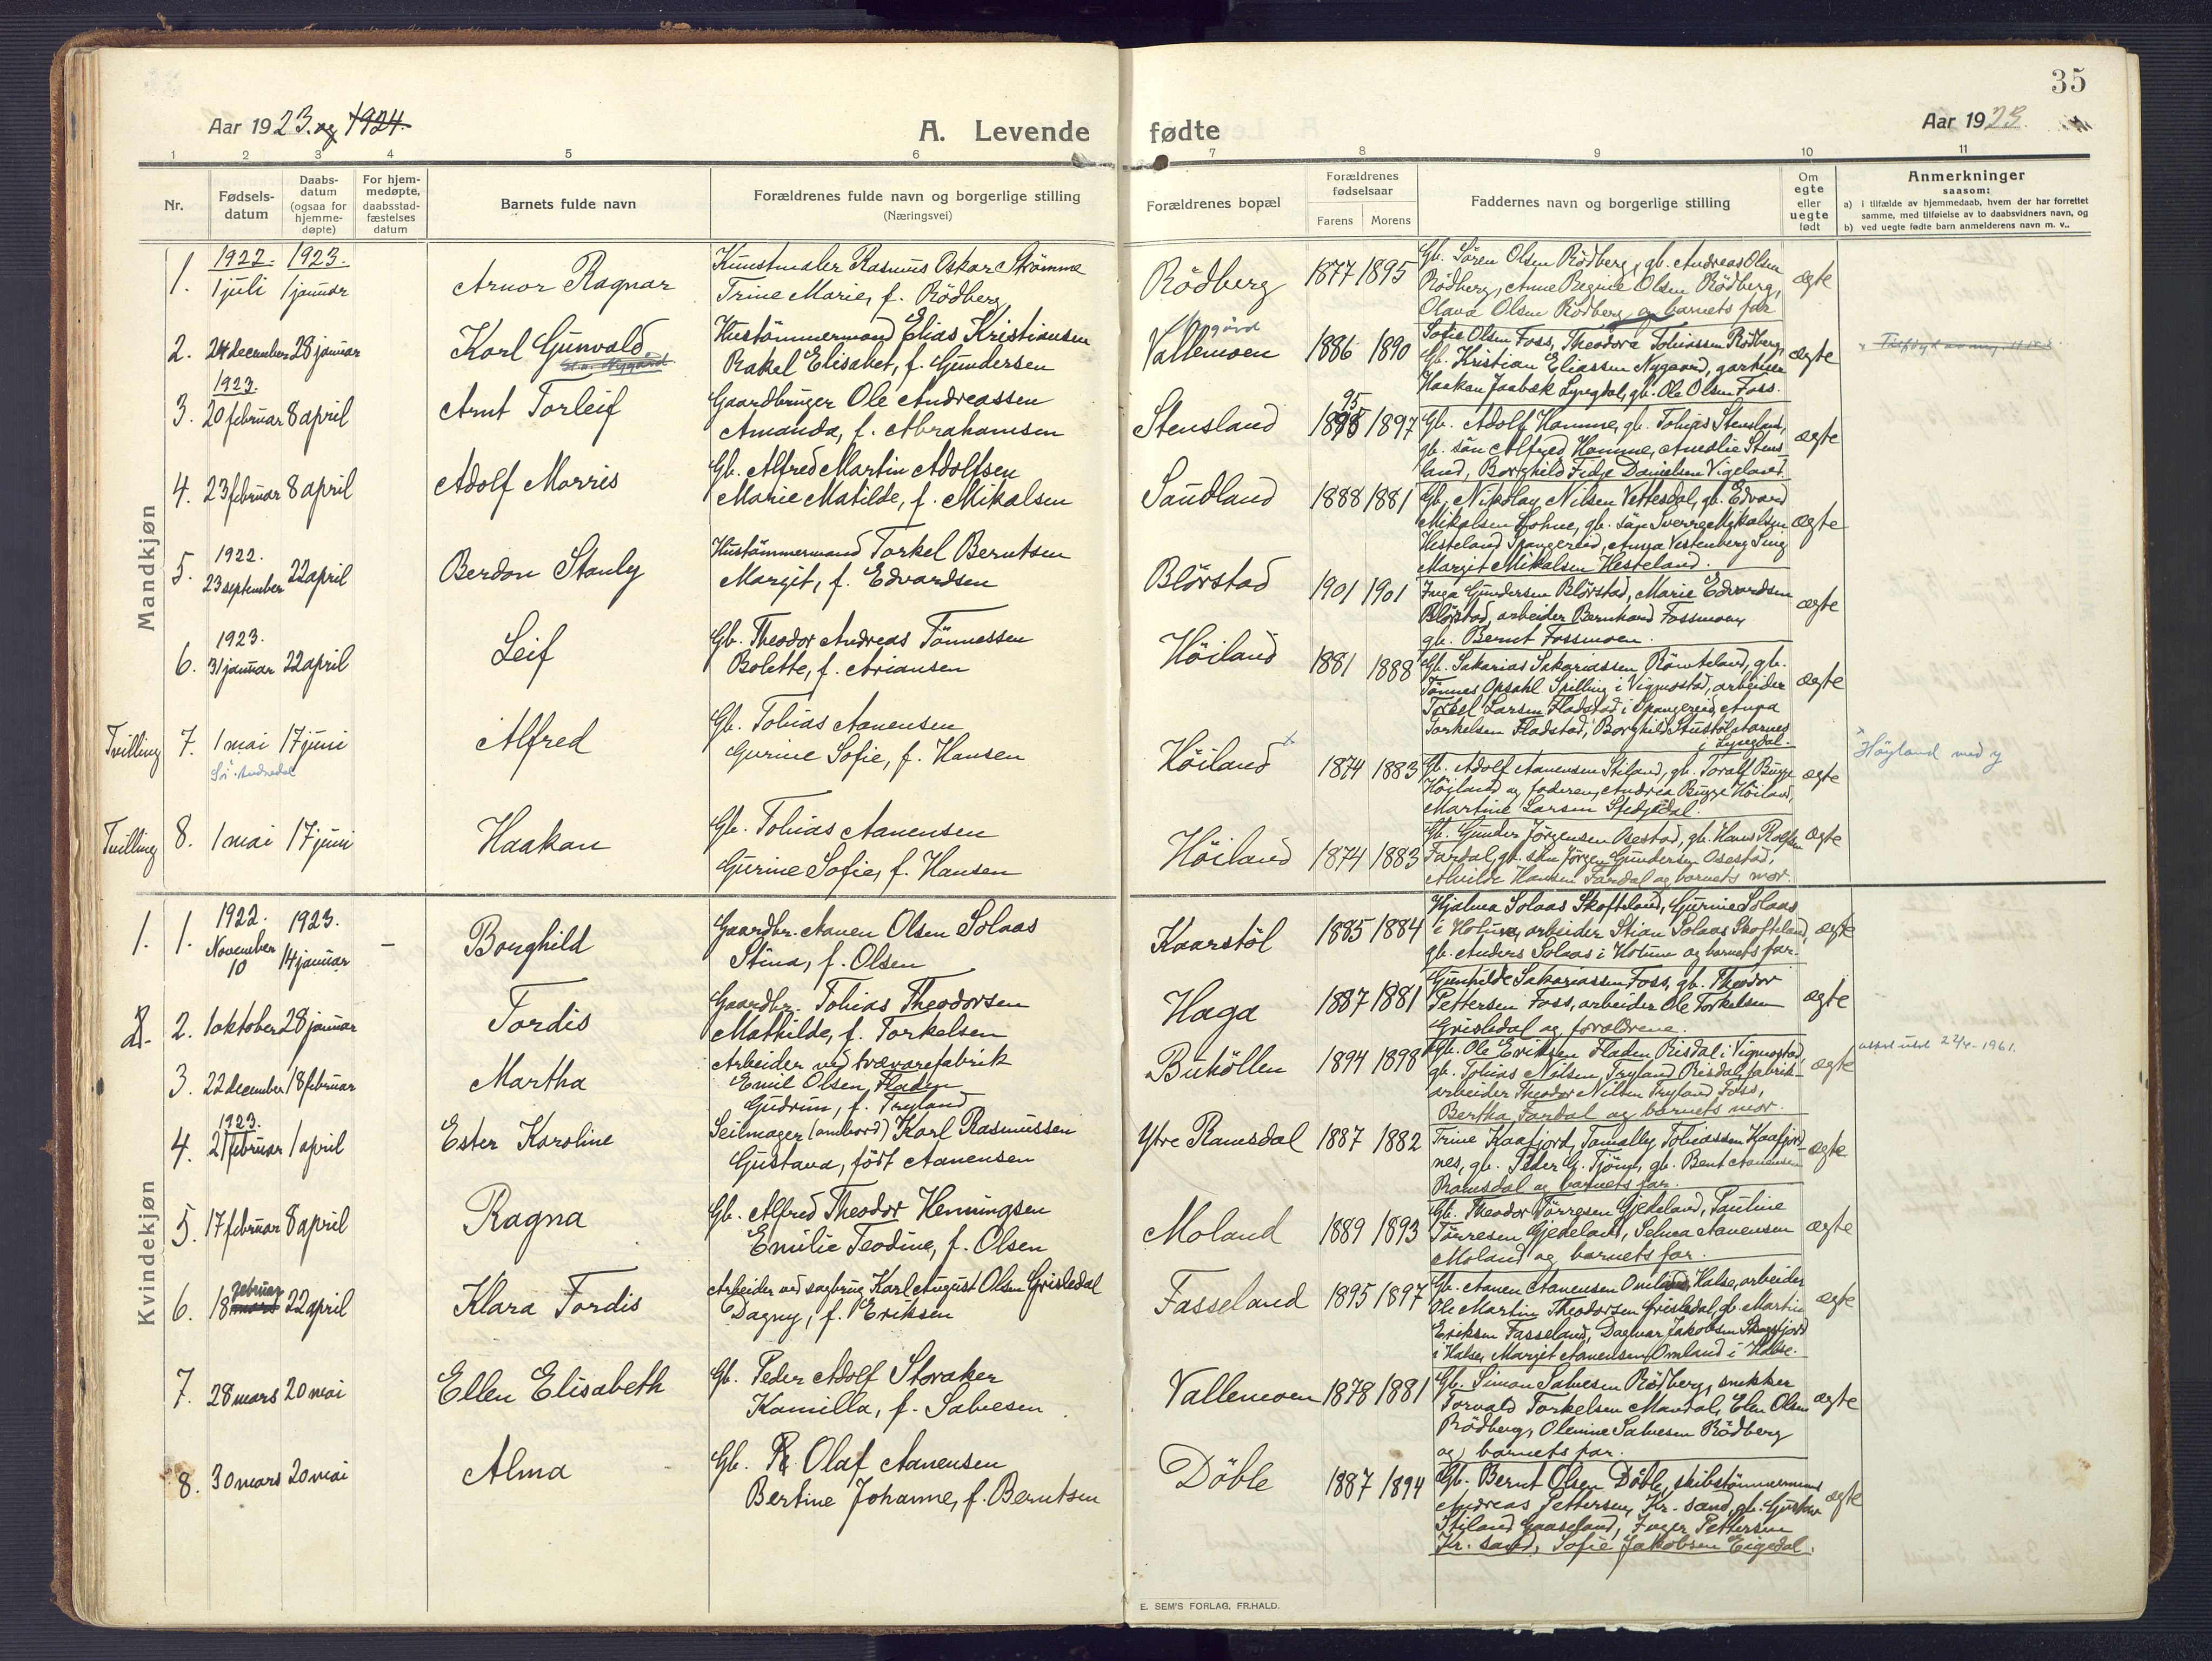 35
Aar 1923. og 1924.
A. Levende fødte
Aar 1923.
1 2 3 4 5 6 7 8 9 10 11
Nr.
Fødsels-
datum
Daabs-
datum
(ogsaa for
hjemme-
døpte)
For hjem-
medøpte,
daabsstad-
fæstelses
datum
Barnets fulde navn
Forældrenes fulde navn og borgerlige stilling
(Næringsvei)
Forældrenes bopæl
Forældrenes
fødselsaar
Farens Morens
Faddernes navn og borgerlige stilling
Om
egte
eller
uegte
født
Anmerkninger
saasom:
a) i tilfælde av hjemmedaab, hvem der har forrettet
samme, med tilføielse av to daabsvidners navn, og
b) ved uegte fødte barn anmelderens navn m. v..
Mandkjøn
1. 1922. 1 juli 1923. 1 januar
Arnor Ragnar
Kunstmaler Rasmus Oskar Strömme
Trine Marie, f. Rödberg
Rödberg 1877 1895
Gb. Sören Olsen Rödberg, gb. Andreas Olsen
Rödberg, Anne Regine Olsen Rödberg,
Olava Olsen Rödberg og barnets far
ægte
2. 24 december 28 januar
Karl Gunvald
Hustömmermand Elias Kristiansen
Rakel Elisabet, f. Gundersen
Nygård
Vallemoen 1886 1890
Sofie Olsen Foss, Theodora Tobiassen Rödberg,
Gb. Kristian Eliassen Nygaard, gartner
Haakon Jaabæk Lyngdal, gb. Ole Olsen Foss.
ægte
3. 1923. 20 februar 8 april
Arnt Torleif
Gaardbruger Ole Andreassen
Amanda, f. Abrahamsen
Stensland 1895 1897
Gb. Adolf Homme, gb. Tobias Stensland,
gb. sön Alfred Homme, Amalie Stens-
land, Borghild Fidje Danielsen Vigeland.
ægte
4. 23 februar 8 april
Adolf Morris
Gb. Alfred Martin Adolfsen
Marie Matilde, f. Mikalsen
Sandland 1888 1881
Gb. Nikolay Nilsen Vettesdal, gb. Edvard
Mikalsen Lohne, gb. sön Sverre Mikalsen
Hesteland Spangereid, Anna Vestenberg
Margit Mikalsen Hesteland.
ægte
5. 1922. 23 september 22 april
Berdon Stanly
Hustömmermand Torkel Berntsen
Margit, f. Edvardsen
Blörstad 1901 1901
Inga Gundersen Blörstad, Marie Edvardsen
Blörstad, arbeider Bernhard Fossmoen,
gb. Bernt Fossmoen.
ægte
6. 1923. 31 januar 22 april
Leif
Gb. Theodor Andreas Tönnessen
Bolette, f. Ariansen
Höiland 1881 1888
Gb. Sakarias Sakariassen Römteland, gb.
Tönnes Opsahl Spilling i Vigmostad, arbeider
Torkel Larsen Fladstad i Spangereid, Anna
Torkelsen Fladstad, Borghild
i Lyngdal.
ægte
Tvilling 7. 1 mai 17 juni
Alfred
Gb. Tobias Aanensen
Gurine Sofie, f. Hansen
Höiland x 1874 1883
Gb. Adolf Aanensen Stiland, gb. Toralf Bugge
Höiland og faderen, Andrea Bugge Höiland,
Martine Larsen Spedjödal.
ægte
x Höyland med y
Tvilling 8. 1 mai 17 juni
Haakon
Gb. Tobias Aanensen
Gurine Sofie, f. Hansen
Höiland 1874 1883
Gb. Gunder Jörgensen Osestad, gb. Hans Rolfsen
Fardal, gb. sön Jörgen Gundersen Osestad,
Alvilde Hansen Fardal og barnets mor.
ægte
Kvindekjøn
1. 1. 1922. November 10 1923. 14 januar –
Borghild
Gaardbr. Aanen Olsen Solaas
Stina, f. Olsen
Kaarstöl 1885 1884
Hjalma Solaas Skofteland, Gurine Solaas
i Holum, arbeider Stian Solaas Skofteland,
gb. Anders Solaas i Holum og barnets far.
ægte
2. 2. 1 oktober 28 januar
Tordis
Gaardbr. Tobias Theodorsen
Mathilde, f. Torkelsen
Haga 1887 1881
Gunhilde Sakariassen Foss, gb. Theodor
Pettersen Foss, arbeider Ole Torkelsen
Grisledal og forældrene.
ægte
3. 22 december 18 februar
Martha
Arbeider ved trævarefabrik
Emil Olsen Fladen
Gudrun, f. Tryland
Buhöllen 1894 1898
Gb. Ole Eriksen Fladen Risdal i Vigmostad,
gb. Tobias Nilsen Tryland Risdal, fabrik-
arbeider Theodor Nilsen Tryland Foss,
Bertha Fardal og barnets mor.
ægte
attest utst 22/4-1961.
4. 1923. 21 februar 1 april
Ester Karoline
Seilmager (ombord) Karl Rasmussen
Gustava, født Aanensen
Ytre Ramsdal 1887 1882
Trine Kaafjord, Tomally Tobiassen Kaafjord
nes, gb. Peder G. Tjöm, gb. Bent Aanensen
Ramsdal og barnets far.
ægte
5. 17 februar 8 april
Ragna
Gb. Alfred Theodor Henningsen
Emilie Teodine, f. Olsen
Moland 1889 1893
Gb. Theodor Törresen Gjedeland, Pauline
Törresen Gjedeland, Selma Aanensen
Moland og barnets far.
ægte
6. 18 februar 22 april
Klara Tordis
Arbeider ved sagbrug Karl August Olsen Grisledal
Dagny, f. Eriksen
Fasseland 1895 1897
Gb. Aanen Aanensen Omland Halse, arbeider
Ole Martin Theodorsen Grisledal, gb. Martin
Eriksen Fasseland, Dagmar Jakobsen
i Halse, Margit Aanensen Omland i Halse.
ægte
7. 28 mars 20 mai
Ellen Elisabeth
Gb. Peder Adolf Storaker
Kamilla, f. Salvesen
Vallemoen 1878 1881
Gb. Simon Salvesen Rödberg, snekker
Torvald Torkelsen Mandal, Elen Olsen
Rödberg, Olemine Salvesen Rödberg
og barnets far.
ægte
8. 30 mars 20 mai
Alma
Gb. Olaf Aanensen
Bertine Johanne, f. Berntsen
Döble 1887 1894
Gb. Bernt Olsen Döble, skibstömmermand
Andreas Pettersen, Kr. sand, gb. Gustav
Stiland Gaaseland, Inger Pettersen
Kr. sand, Sofie Jakobsen Eigedal.
ægte
E. SEM'S FORLAG, FR.HALD.